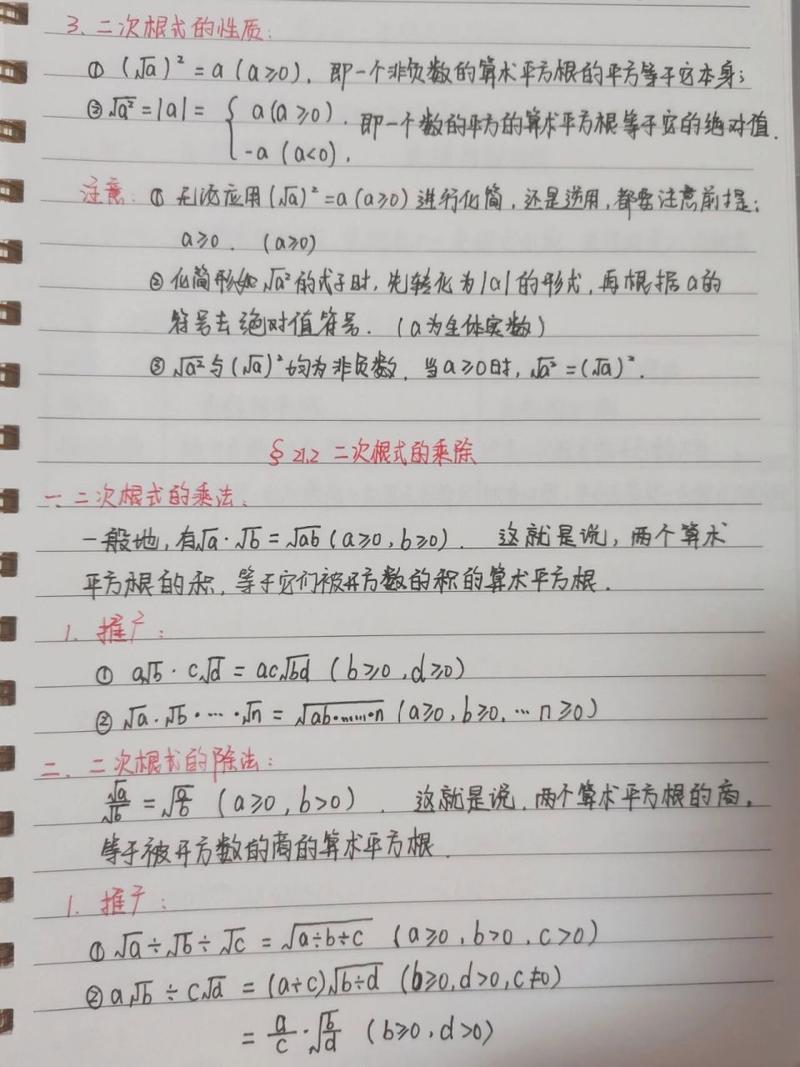 3. 二次根式的性质:
① (√a)² = a (a≥0). 即一个非负数的算术平方根的平方等于它本身;
② √a² = |a| = { a (a≥0). 即一个数的平方的算术平方根等于它的绝对值.
-a (a<0).
注意: ① 无论应用(√a)²=a (a≥0) 进行化简, 还是逆用, 都要注意前提:
a≥0. (a≥0)
② 化简形如√a²的式子时, 先转化为|a|的形式, 再根据a的
符号去绝对值符号. (a为全体实数)
③ √a²与(√a)²均为非负数. 当a≥0时, √a²=(√a)².
§ 21.2 二次根式的乘除
一. 二次根式的乘法:
一般地, 有√a·√b=√ab (a≥0, b≥0). 这就是说, 两个算术
平方根的积, 等于它们被开方数的积的算术平方根.
1. 推广:
① a√b · c√d = ac√bd (b≥0, d≥0)
② √a·√b·…·√n = √ab·……·n (a≥0, b≥0, … n≥0)
二. 二次根式的除法:
√a/√b = √a/b (a≥0, b>0). 这就是说, 两个算术平方根的商,
等于被开方数的商的算术平方根.
1. 推广:
① √a÷√b÷√c = √a÷b÷c (a≥0, b>0, c>0)
② a√b ÷ c√d = (a÷c)√b÷d (b≥0, d>0, c≠0)
= a/c · √b/d (b≥0, d>0)